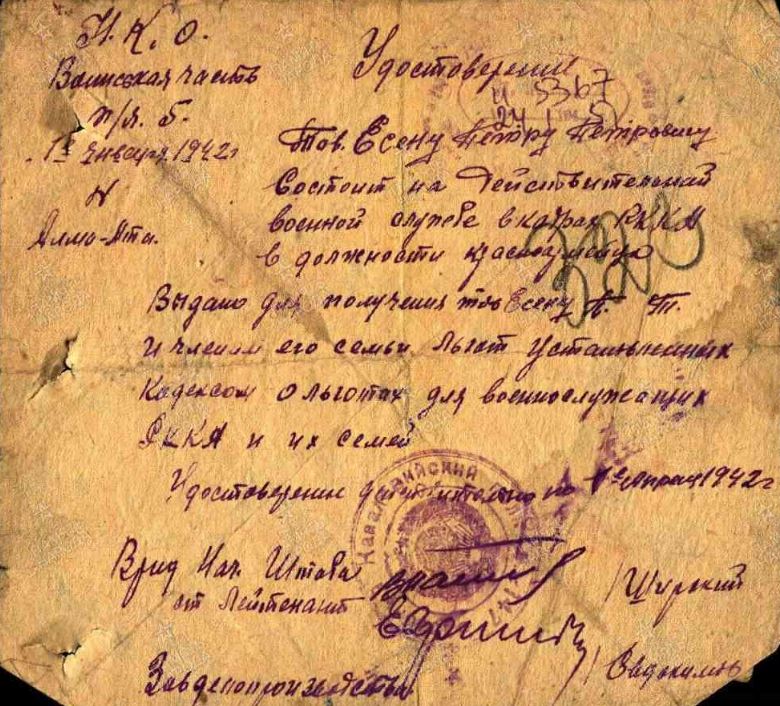 Н. К. О.
Воинская часть
п/я. 5.
1го января 1942г
N
Алма-Ата.
Удостоверение
N 5367
24 I
Тов. Есену Петру Петровичу
Состоит на Действительной
военной службе в кадрах РККА
в должности красноармейца
Выдано для получения тов Есену П. П.
и членам его семьи льгот Установленных
Кодексом о льготах для военнослужащих
РККА и их семей
Удостоверение действительно по 1е апреля 1942г
Кавалерийский
Врид Нач. Штаба
ст Лейтенант
/Ширский
/Евдокимов
Завделопроизводством